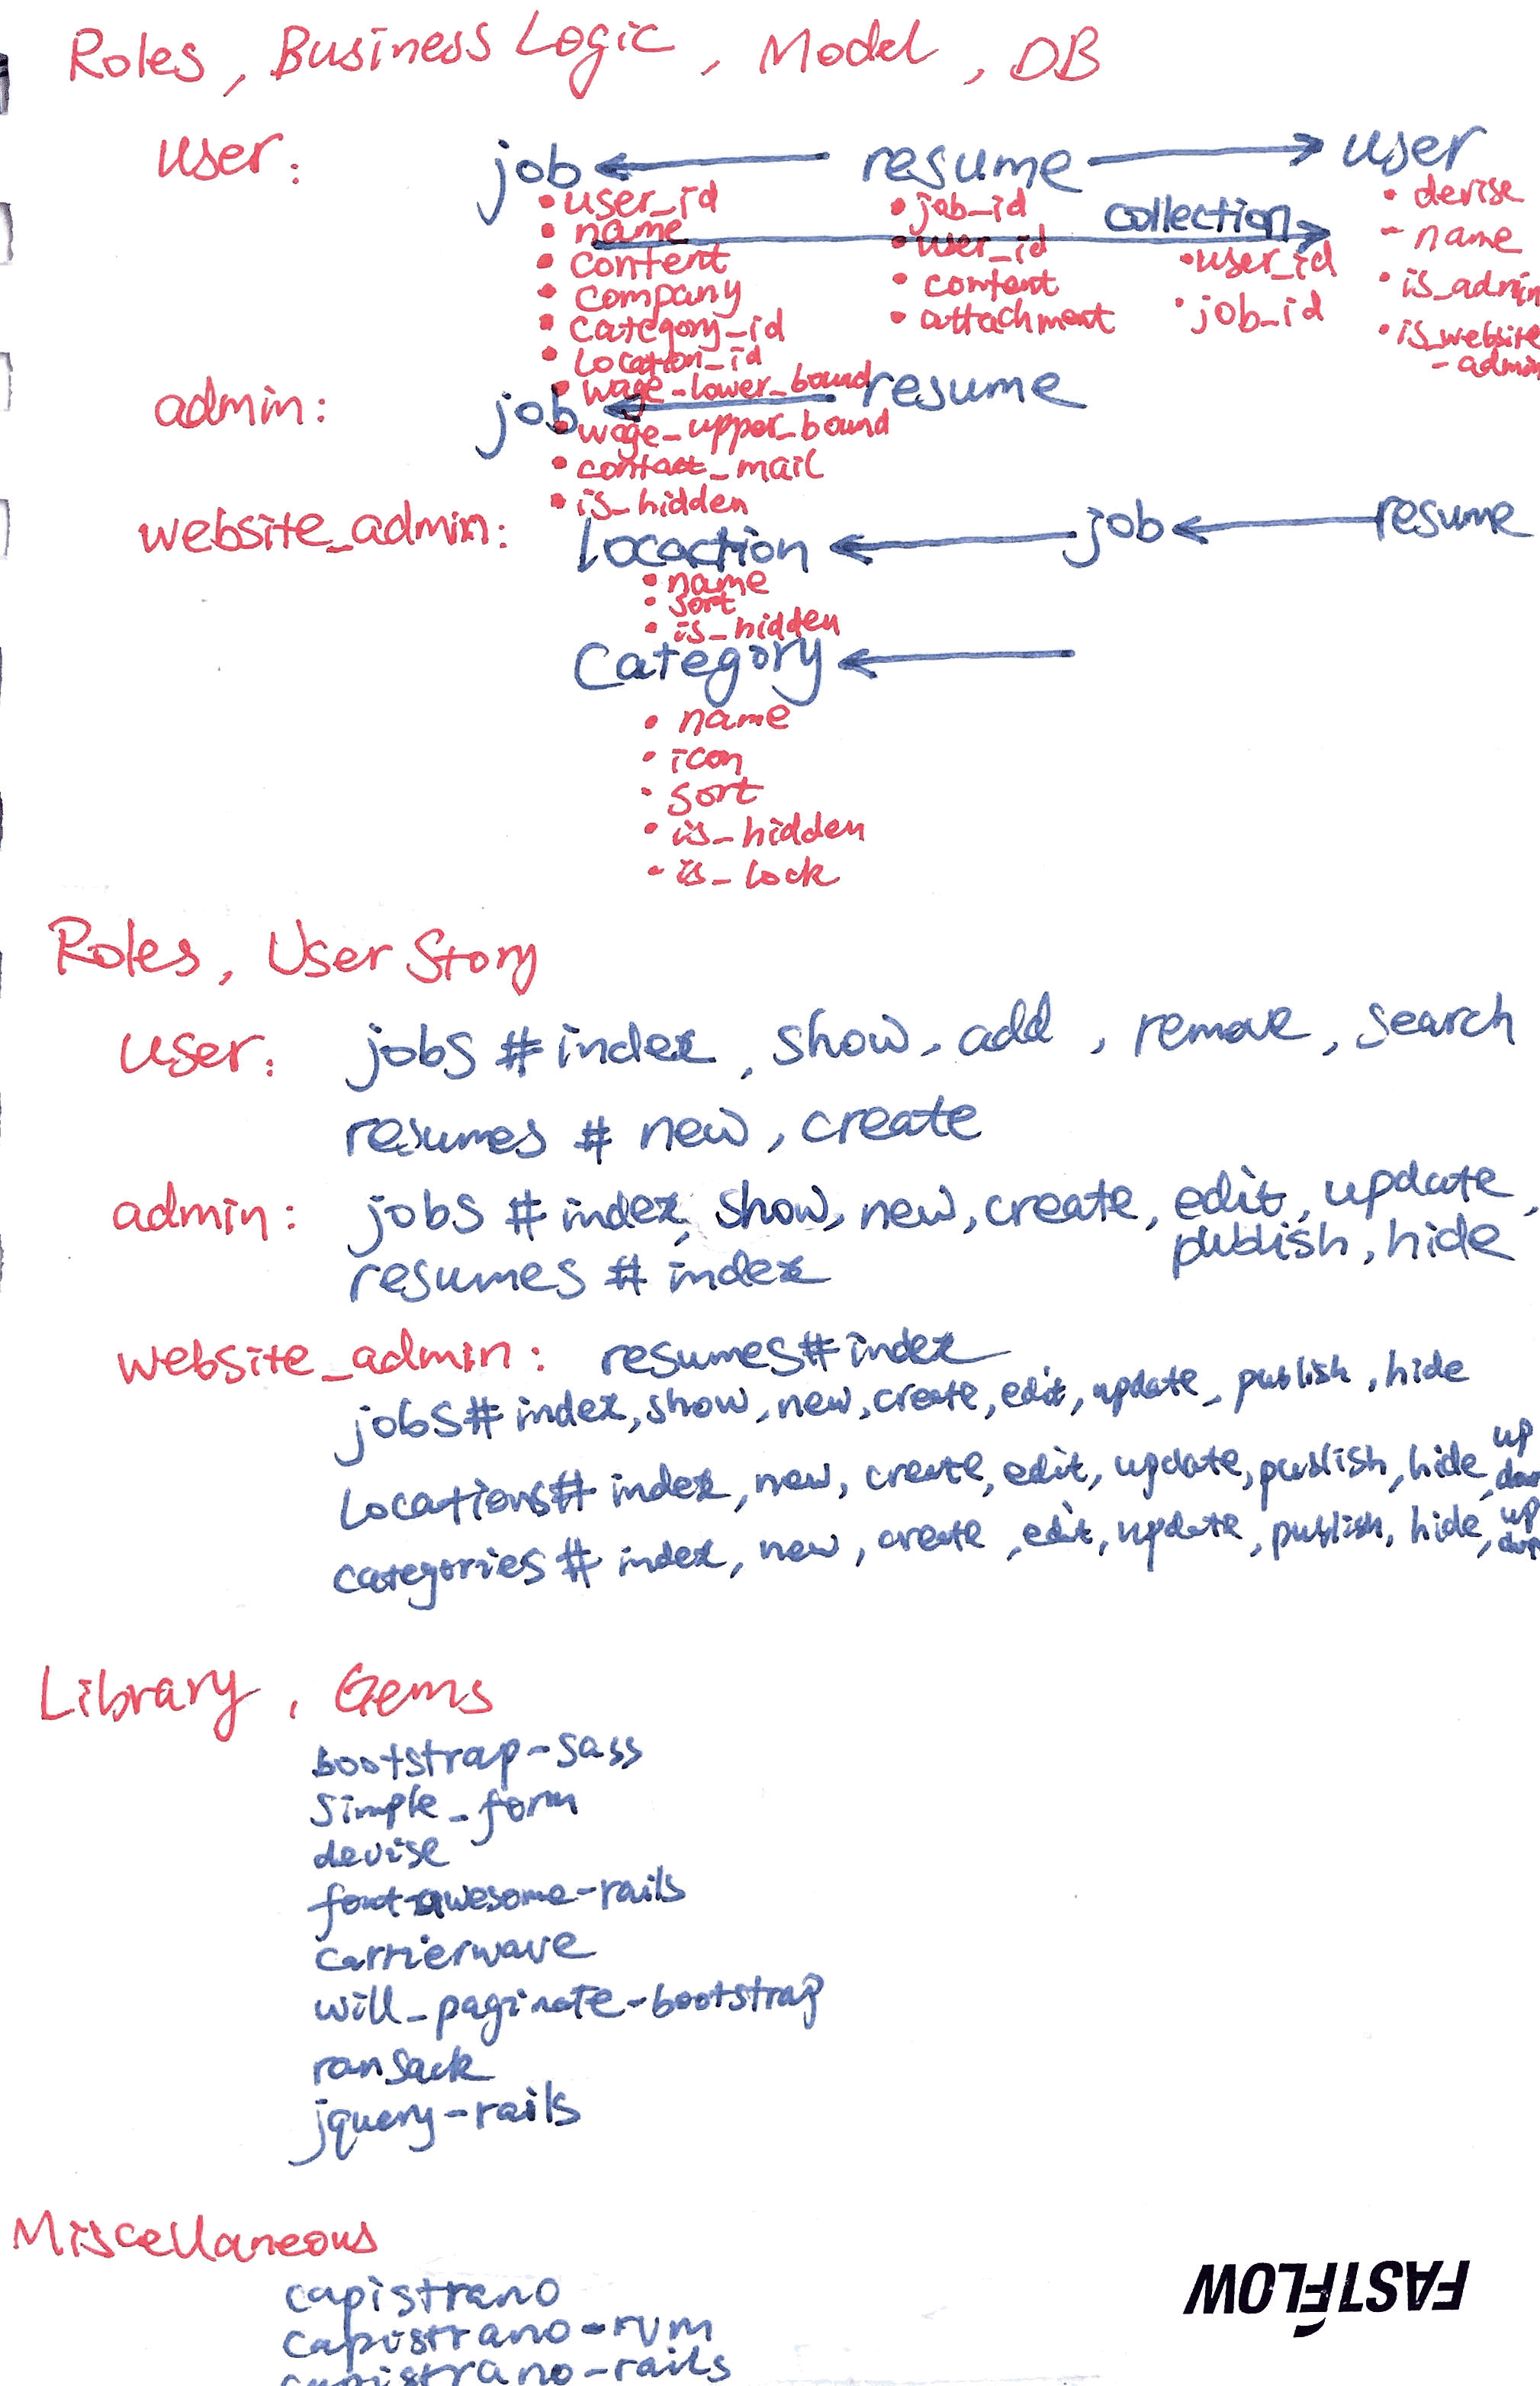 Roles, Business Logic, Model, DB
user: job resume user
• user_id
• name
• content
• company
• category_id
• location_id
• wage_lower_bound
• wage_upper_bound
• contact_mail
• is_hidden
• job_id
• user_id
• content
• attachment
collection
• user_id
• job_id
• devise
- name
• is_admin
• is_website
- admin
admin: job resume
website_admin: Locaction job resume
• name
• sort
• is_hidden
Category
• name
• icon
• sort
• is_hidden
• is_lock
Roles, User Story
user: jobs # index, show, add, remove, search
resumes # new, create
admin: jobs # index, show, new, create, edit, update,
publish, hide
resumes # index
website_admin: resumes# index
jobs# index, show, new, create, edit, update, publish, hide
Locations# index, new, create, edit, update, publish, hide, up
categories # index, new, create, edit, update, publish, hide, up
Library, Gems
bootstrap-sass
simple_form
devise
font-awesome-rails
carrierwave
will_paginate-bootstrap
ransack
jquery-rails
Miscellaneous
capistrano
capistrano-rvm
capistrano-rails
FASTFLOW